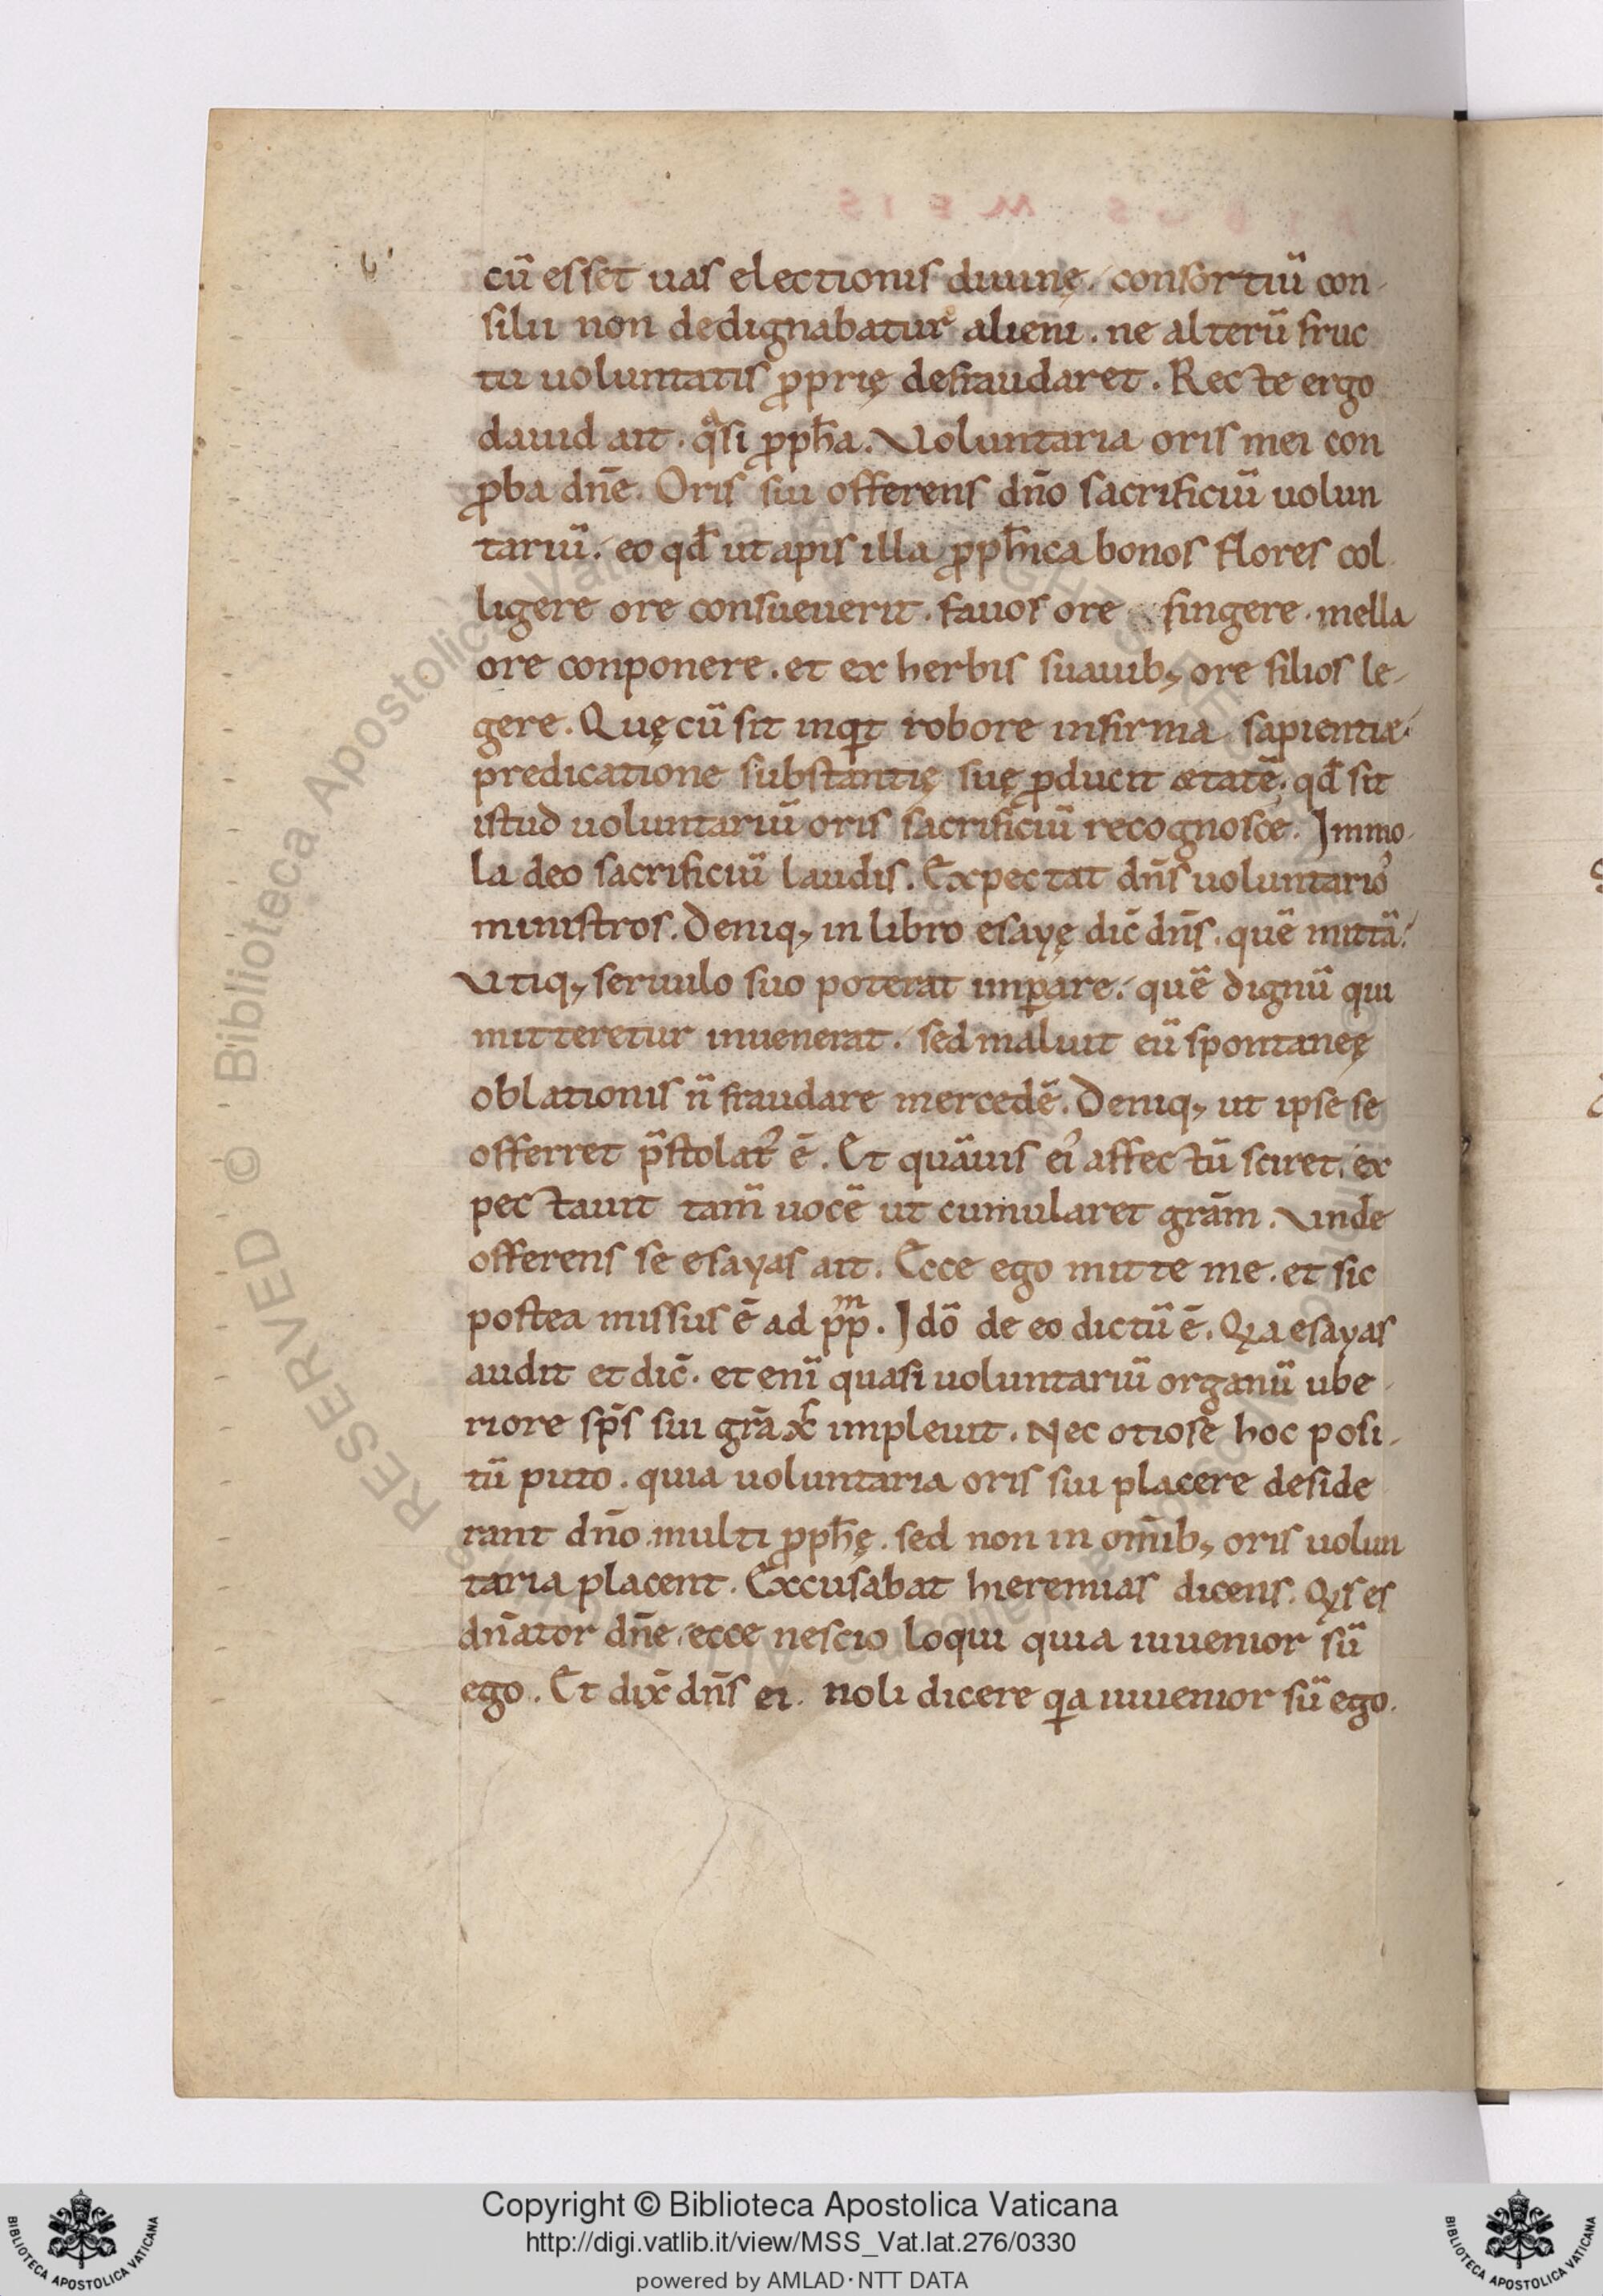 cū esset uas electionis diuinę. consortiū con-
silii non dedignabatur alieni. ne alterū fruc
tu uoluntatis ꝓprię defraudaret. Recte ergo
dauid ait. qͣsi ꝓph̄a. Uoluntaria oris mei con
ꝓba dn̄e. Oris sui offerens dn̄o sacrificiū uolun
tariū. eo qd̄ ut apis illa ꝓph̄ica bonos flores col
ligere ore consueuerit. fauos ore fingere. mella
ore conponere. et ex herbis suauib; ore filios le-
gere. Quę cū sit inqꝭt robore infirma sapientiæ
predicatione substantię suę ꝓducit ætatē. qd̄ sit
istud uoluntariū oris sacrificiū recognosce. Immo-
la deo sacrificiū laudis. Expectat dn̄s uoluntario᾽
ministros. Deniq; in libro esayę dic̄ dn̄s. quē mittā.
Utiq; seruulo suo poterat imꝑare. quē dignū qui
mitteretur inuenerat. sed maluit eū spontaneę
oblationis n̄ fraudare mercedē. Deniq; ut ipse se
offerret p̄stolat᾽ ē. Et quāuis ei᾽ affectū sciret. ex
pectauit tam̄ uocē ut cumularet grām. Vnde
offerens se esayas ait. Ecce ego mitte me. et sic
postea missus ē ad pp̄ᵐ. Idō de eo dictū ē. Qꝛa esayas
audit et dic̄. et enī quasi uoluntariū organū ube-
riore sp̄s sui grā xc̄ impleuit. Nec otiose hoc posi-
tū puto. quia uoluntaria oris sui placere deside
rant dn̄o multi ꝓph̄ę. sed non in om̄ib; oris uolun
taria placent. Excusabat hieremias dicens. Qꝭs es
dn̄ator dn̄e. ecce nescio loqui quia iuuenior sū
ego. Et dix̄ dn̄s ei. noli dicere qꝛa iuuenior sū ego.
Copyright © Biblioteca Apostolica Vaticana
http://digi.vatlib.it/view/MSS_Vat.lat.276/0330
powered by AMLAD·NTT DATA